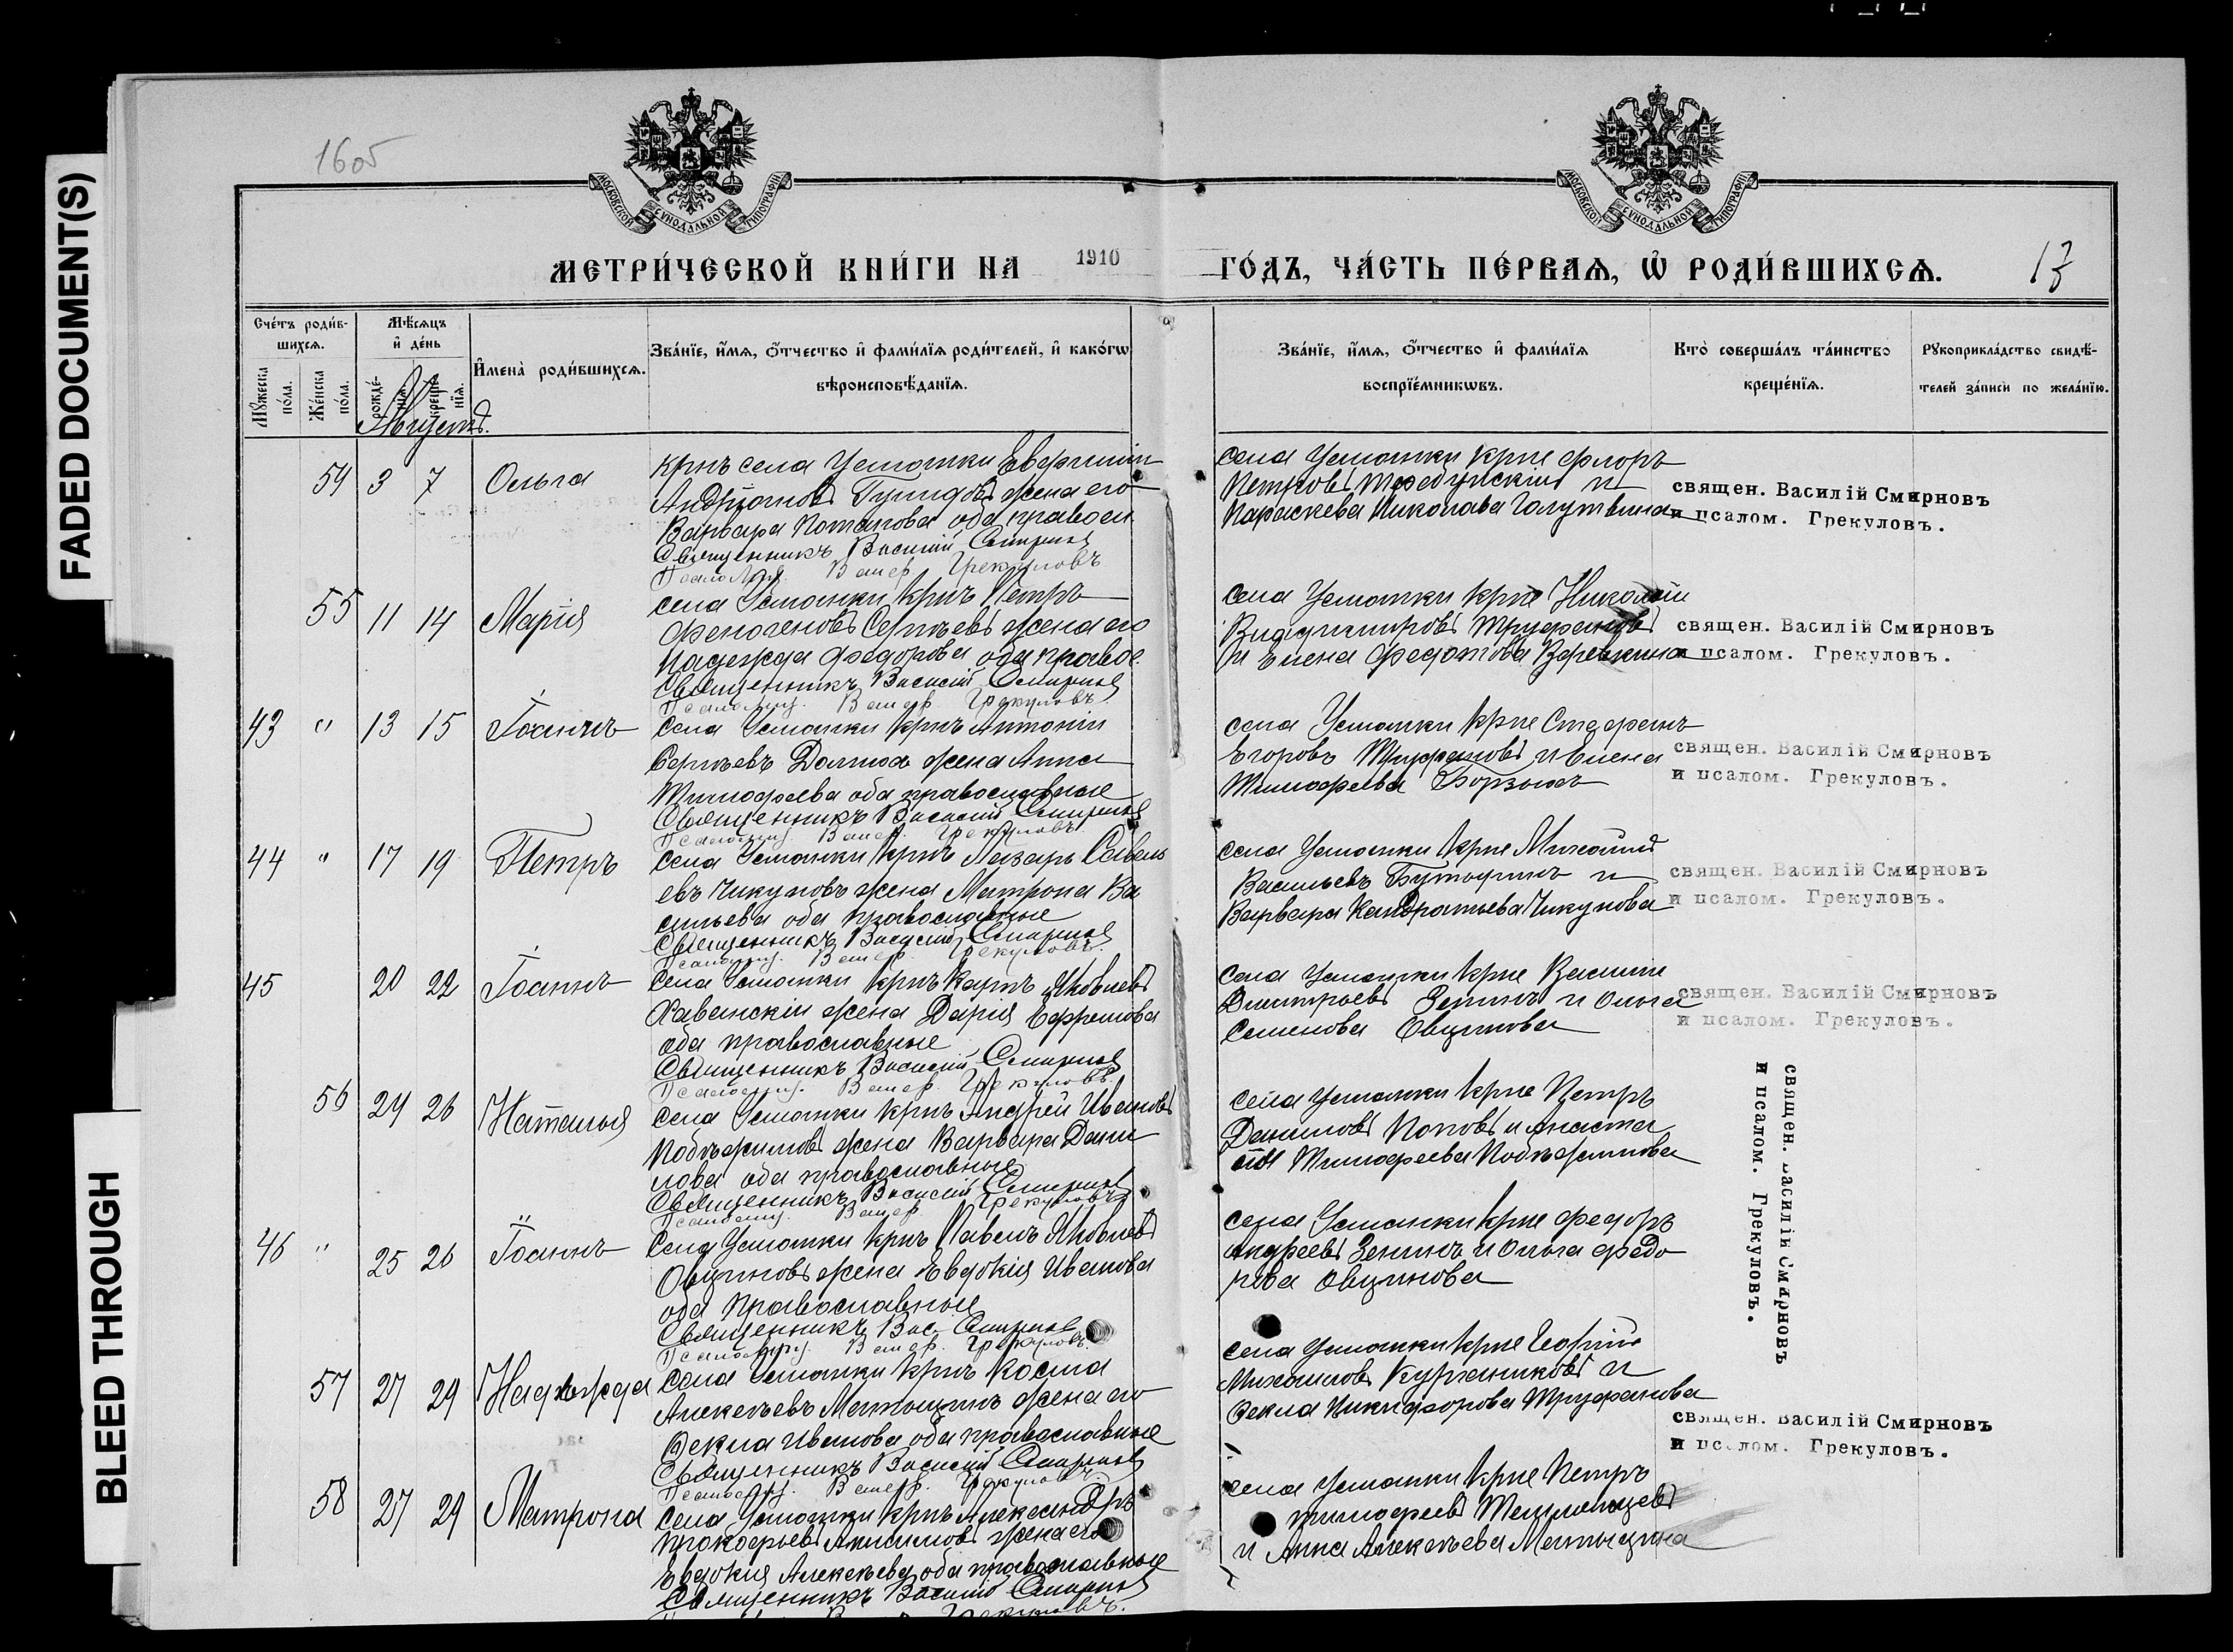 FADED DOCUMENT(S)
BLEED THROUGH
1605
МОСКОВСКОЙ СУНОДАЛЬНОЙ ТИПОГРАФІИ
МОСКОВСКОЙ СУНОДАЛЬНОЙ ТИПОГРАФІИ
МЕТРИ́ЧЕСКОЙ КНИ́ГИ НА 1910 ГО́ДЪ, ЧА́СТЬ ПЕ́РВАѦ, Ѡ҆ РОДИ́ВШИХСѦ.
Сче́тъ роди́в-
шихсѧ.
Мꙋ́жеска по́ла.
Же́нска по́ла.
Мѣ́сѧцъ
и҆ де́нь
рожде́-
нїѧ.
креще́-
нїѧ.
Августъ.
И҆мена̀ роди́вшихсѧ.
Зва́нїе, и҆́мѧ, ѻ҆́тчество и҆ фами́лїѧ роди́телей, и҆ како́гѡ
вѣроисповѣ́данїѧ.
Зва́нїе, и҆́мѧ, ѻ҆́тчество и҆ фами́лїѧ
воспрїе́мникѡвъ.
Кто̀ соверша́лъ та́инство
креще́нїѧ.
Рꙋкоприкла́дство свидѣ́-
телей за́писи по жела́нїю.
54 3 7 Ольга
крнъ села Усманки
жена его
Варвара Потапова оба правосл.
Священникъ Василий Смирнов
Грекуловъ
села Усманки крне Флоръ
Петровъ и
Параскева Николаева
священ. Василій Смирновъ
и псалом. Грекуловъ.
55 11 14 Марія
села Усманки крнъ Петръ
Феногеновъ Сергѣевъ жена его
Надежда Федорова оба правос.
Священникъ Василий Смирнов
Грекуловъ.
села Усманки крне Николай
Владимировъ Труфановъ
и Елена Федотова Веревкина
священ. Василій Смирновъ
и псалом. Грекуловъ.
43 " 13 15 Іоаннъ
села Усманки крнъ Антоній
Сергѣевъ жена Анна
Тимофеева оба православные
Священникъ Василий Смирнов
Грекуловъ.
села Усманки крне Стефанъ
Егоровъ Труфановъ и Елена
Тимофеева Борзыхъ
священ. Василій Смирновъ
и псалом. Грекуловъ.
44 " 17 19 Петръ
села Усманки крнъ Лазарь Савель
евъ Чикуновъ жена Матрона Ва
сильева оба православные
Священникъ Василий Смирнов
Грекуловъ.
села Усманки крне Михаилъ
Васильевъ и
Варвара Кандратьева Чикунова
священ. Василій Смирновъ
и псалом. Грекуловъ.
45 20 22 Іоаннъ
села Усманки крнъ Карпъ Яковлевъ
Хаванскій жена Дарія Ефремова
оба православные
Священникъ Василий Смирнов
Грекуловъ.
села Усманки крне Василій
Дмитріевъ Зенинъ и Ольга
Семенова Овчинова
священ. Василій Смирновъ
и псалом. Грекуловъ.
56 24 26 Наталья
села Усманки крнъ Андрей Ивановъ
жена Варвара Дани
лова оба православные
Священникъ Василий Смирнов
Грекуловъ
села Усманки крне Петръ
Даниловъ Поповъ и Анаста
сія Тимофеева
священ. Василій Смирновъ
и псалом. Грекуловъ.
46 " 25 26 Іоаннъ
села Усманки крнъ Павелъ Яковлевъ
Овчиновъ жена Евдокія Иванова
оба православные
Священникъ Вас. Смирнов
Грекуловъ.
села Усманки крне Федоръ
Андреевъ Зенинъ и Ольга Федо
рова Овчинова
57 27 29 Надежда
села Усманки крнъ Косма
Алексѣевъ Матыцинъ жена его
Ѳекла Иванова оба православные
Священникъ Василий Смирнов
Грекуловъ.
села Усманки крне Георгій
Михаиловъ и
Ѳекла Никифорова Труфанова
священ. Василій Смирновъ
и псалом. Грекуловъ.
58 27 29 Матрона
села Усманки крнъ Александръ
Прокофьевъ Анисимовъ жена его
Евдокия Алексѣева оба православные
Священникъ Василий Смирнов
Грекуловъ.
села Усманки крне Петръ
Тимофеевъ
и Анна Алексѣева Матыцина